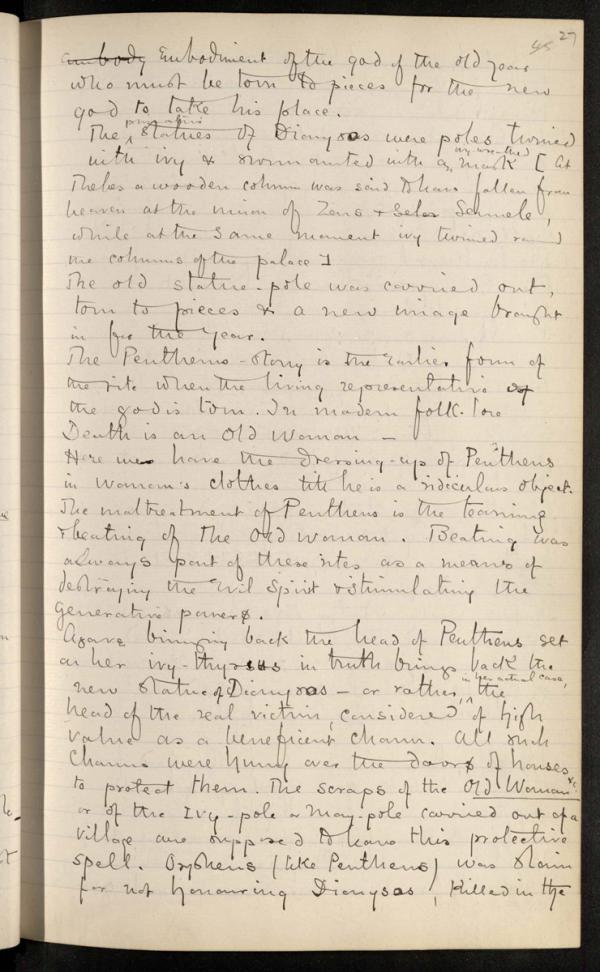 45 27
embody Embodiment of the god of the old year
who must be torn to pieces for the new
god to take his place.
primative
The statues of Dionysos were poles twined
ivy-wreathed
with ivy & surmounted with a mask [At
Thebes a wooden column was said to have fallen from
heaven at the union of Zeus & Selos Semele,
while at the same moment ivy twined round
the columns of the palace]
The old statue-pole was carried out,
torn to pieces & a new image brought
in for the year.
The Pentheus-story is the earlier form of
the rite when the living representative of
the god is torn. In modern folk-lore
Death is an Old Woman —
Here we have the dressing-up of Pentheus
in woman's clothes till he is a ridiculous object.
The maltreatment of Pentheus is the tearing
& beating of the Old Woman. Beating was
always part of these rites as a means of
destroying the evil spirit & stimulating the
generative powers.
Agave bringing back the head of Pentheus set
on her ivy-thyrsus in truth brings back the
in her actual case,
new statue of Dionysos – or rather, the
head of the real victim, considered of high
value as a beneficent charm. All such
charms were hung over the doors of houses &c
to protect them. The scraps of the Old Woman
or of the Ivy-pole or May-pole carried out of a
village are supposed to have this protective
spell. Orpheus (like Pentheus) was slain
for not honouring Dionysos, killed in the